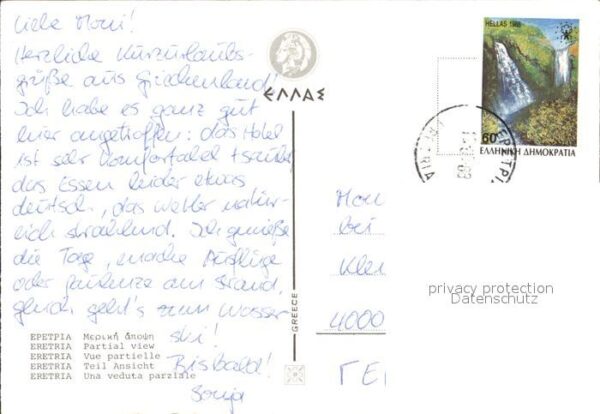 Liebe Moni!
Herzliche Kurzurlaubs-
grüße aus Griechenland!
Ich habe es ganz gut
hier angetroffen: das Hotel
ist sehr komfortabel + sauber,
das Essen leider etwas
deutsch, das Wetter natür-
lich strahlend. Ich genieße
die Tage, mache Ausflüge
oder faulenze am Strand,
gleich geht's zum Wasser-
ski!
Bis bald!
Sonja
ΕΛΛΑΣ
HELLAS 1988
60
ΕΛΛΗΝΙΚΗ ΔΗΜΟΚΡΑΤΙΑ
ΕΡΕΤΡΙΑ
ERETRIA
Mon
bei
Klei
4000
ΓΕ
privacy protection
Datenschutz
GREECE
ΕΡΕΤΡΙΑ Μερική άποψη
ERETRIA Partial view
ERETRIA Vue partielle
ERETRIA Teil Ansicht
ERETRIA Una veduta parziale